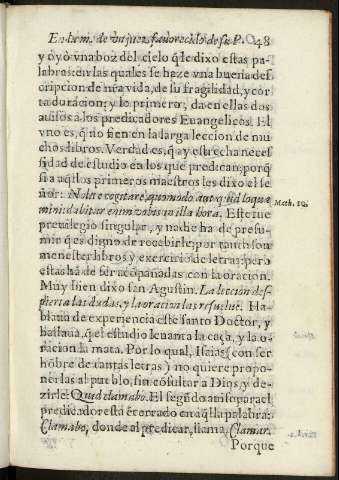 y oyò vna boz del cielo q̃ le dixo estas pa-
labras: en las quales se haze vna buena des-
cripcion de nr̃a vida, de su fragilidad, y cor-
ta duracion: y lo primero, da en ellas dos
auisos à los predicadores Euangelicos. El
vno es, q̃ no fien en la larga leccion de mu-
chos libros. Verdad es, q̃ ay estrecha neces
sidad de estudio en los que predican, porq̃
si a aq̃llos primeros maestros les dixo el se
ñor: Nolite cogitare, quomodo aut quid loquamini: dabitur enim vobis in illa hora. Este fue
Math. 10.
preuilegio singular, y nadie ha de presu-
mir q̃ es digno de recebirle; por tanto son
menester libros y exercicio de letras: pero
estas hã de ser acõpañadas con la oracion.
Muy bien dixo san Agustin. La leccion des-
pierta las dudas, y la oracion las resuelue. Ha-
blaua de experiencia este santo Doctor, y
hallaua, q̃ el estudio leuanta la caça, y la o-
racion la mata. Por lo qual, Isaias (con ser
hõbre de tantas letras) no quiere propo-
nerlas al pueblo, sin cõsultar a Dios, y de-
zirle: Quid clamabo. El segũdo auiso para el
predicador està encerrado en aq̃lla palabra:
Clamabo, donde al predicar, llama, Clamar.
Porque